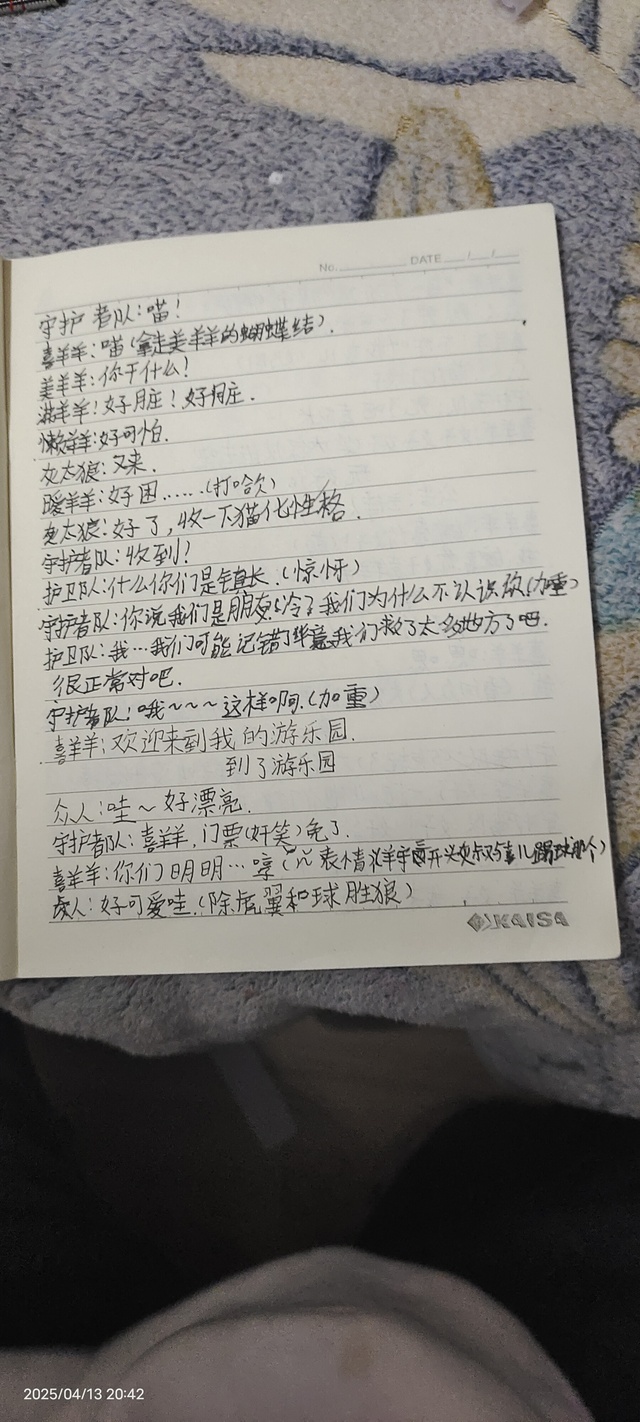 No. DATE / /
守护者队:喵!
喜羊羊:喵(拿走美羊羊的蝴蝶结).
美羊羊:你干什么!
沸羊羊!好月庄!好月庄.
懒羊羊:好可怕.
灰太狼:又来.
暖羊羊:好困……(打哈欠)
灰太狼:好了,收一下猫化性格.
守护者队:收到!
护卫队:什么你们是镇长.(惊讶)
守护者队:你说我们是朋友 我们为什么不认识你(加重)
护卫队:我…我们可能记错了毕竟我们救了太多地方了吧.
很正常对吧.
守护者队:哦~~~这样啊.(加重)
喜羊羊:欢迎来到我的游乐园.
到了游乐园
众人:哇~好漂亮.
守护者队:喜羊羊,门票(奸笑)免了.
喜羊羊:你们明明…哼( 表情 羊宇宙开 踢球那个)
众人:好可爱哇.(除虎翼和球胜狼)
KAISA
2025/04/13 20:42